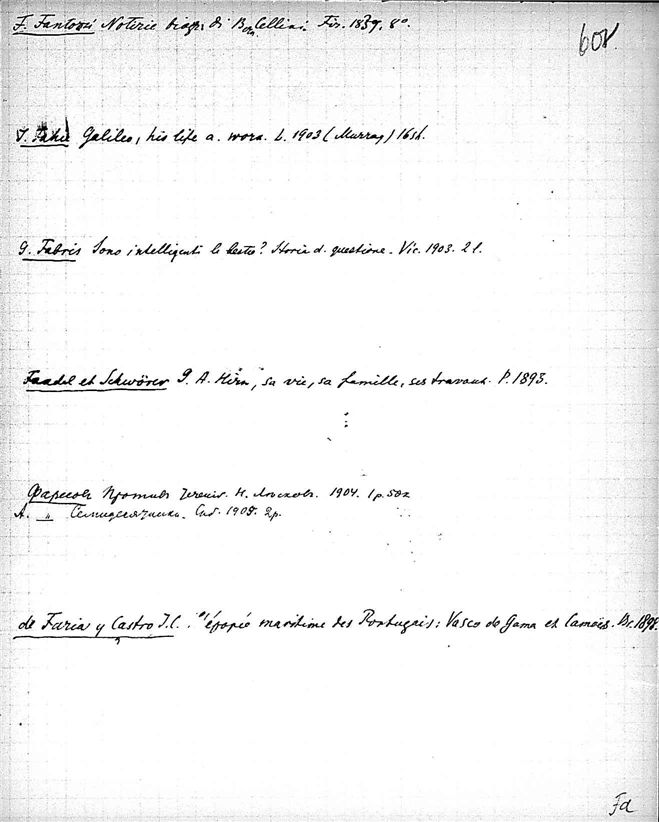 F. Fantozzi Notizie biogr. di B. Cellini. Fir. 1839. 8°.
608.
J. Fahie Galileo, his life a. work. L. 1903 (Murray) 16sh.
G. Fabris Sono intelligenti le bestie? Storia d. questione. Vic. 1903. 2 l.
Faadel et Schwörer G. A. Hirn, sa vie, sa famille, ses travaux. P. 1893.
Фаресовъ Противъ теченія. Н. Лѣсковъ. 1904. 1 р. 50к
А. " Семидесятники. Спб. 1905. 2р.
de Faria y Castro J.C. L'épopée maritime des Portugais: Vasco de Gama et Camoës. Br. 1898.
Fa